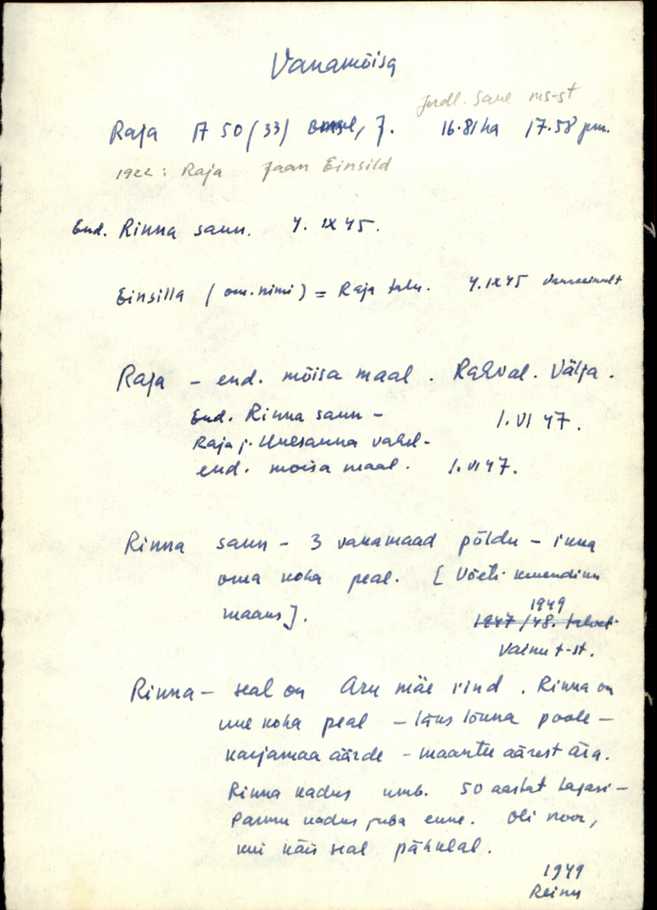 Vanamõisa
juurdl. saue ms-st
Raja A 50 (33) J. 16.81 ha 17.58 rm.
1922: Raja Jaan Einsild
End. Rinna saun. 4. IX 45.
Einsilla (om. nimi) = Raja talu. 4. IX 45
Raja – end. mõisa maal. Rahval. Välja.
End. Rinna saun – 1. VI 47.
Raja j. Unesauna vahel –
end. moisa maal. 1. VI 47.
Rinna saun – 3 vakamaad põldu –
oma koha peal. [Võeti
maaks]. 1949
1947/48. talvel
Vainu t-st.
Rinna – seal on Aru mäe rind. Rinna on
uue koha peal – läks lõuna poole –
karjamaa äärde – maantee äärest ära.
Rinna kadus umb. 50 aastat tagasi –
kadus juba enne. Oli noor,
kui käis seal pähklal.
1949
Reinu